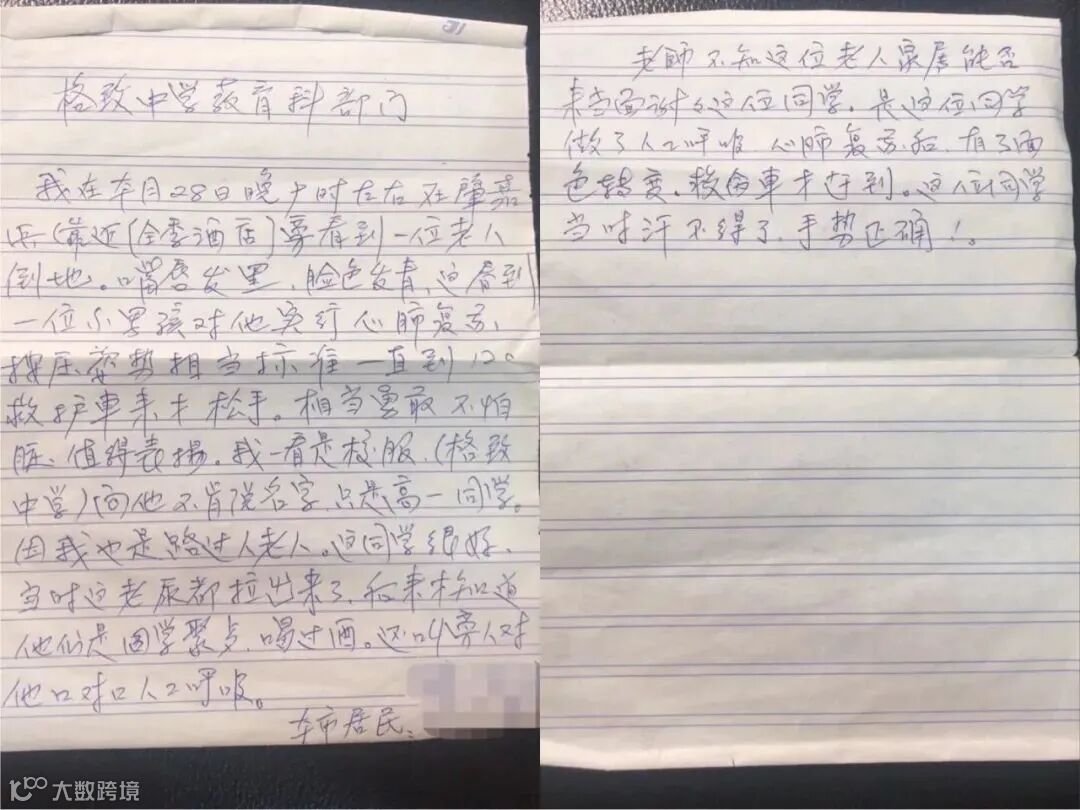 格致中学教育科部门
我在本月28日晚 时左右在肇嘉
浜(靠近[全季酒店] 看到一位老人
倒地。嘴唇发黑、脸色发青、 看到
一位小男孩对他实行心肺复苏、
按压姿势相当标准一直到120
救护車来才松手。相当勇敢不怕
脏、值得表揚。我一看是校服、(格致
中学)问他不肯说名字、只是高一同学。
因我也是路过人老人。这同学很好、
当时这老尿都拉出来了、后来才知道
他们是同学聚 、喝过酒。还叫 人对
他口对口人工呼吸。
本市居民:
老師不知这位老人家属能否
来当面谢谢这位同学。是这位同学
做了人工呼吸 心肺复苏后、有了面
色转变。救命車才 到。这位同学
当时汗不得了、手势正确!。
大数跨境